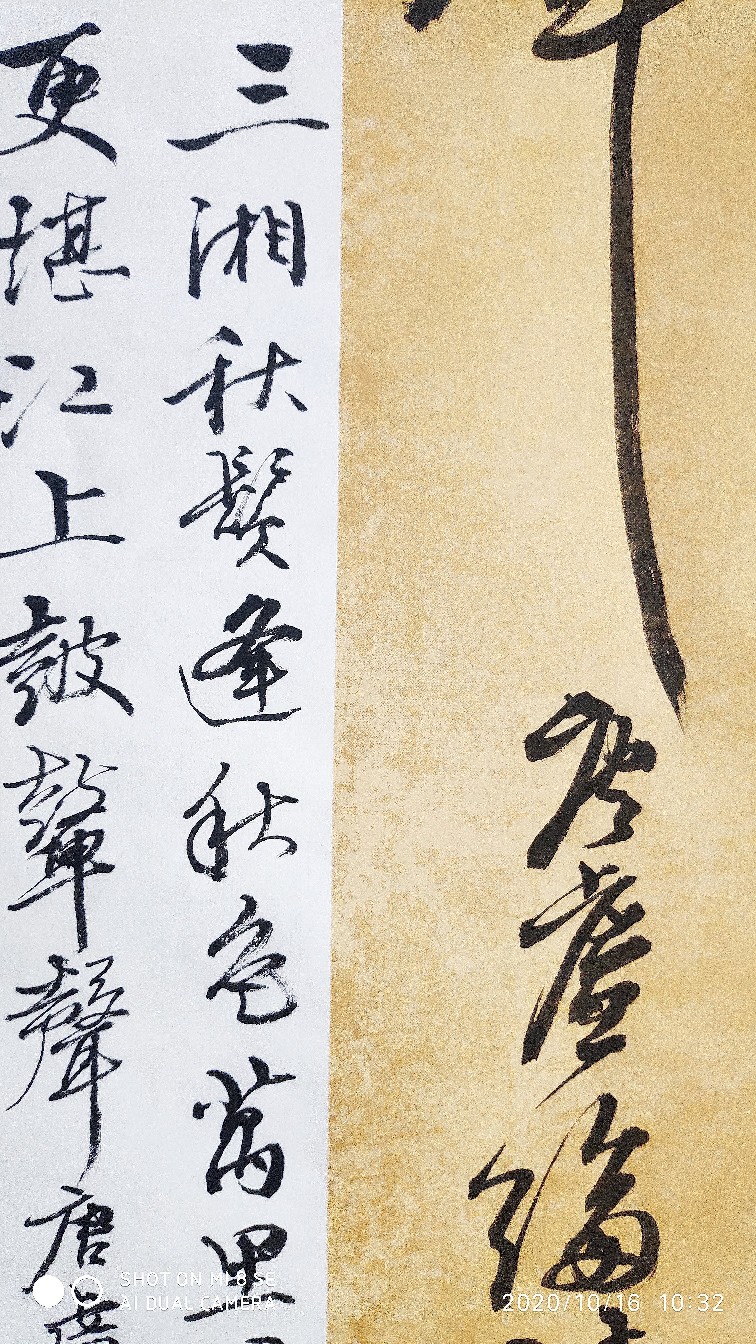 唐盧綸
三湘秋鬢逢秋色萬里
更堪江上皷鼙聲唐盧
SHOT ON MI 8 SE
AI DUAL CAMERA
2020/10/16 10:32